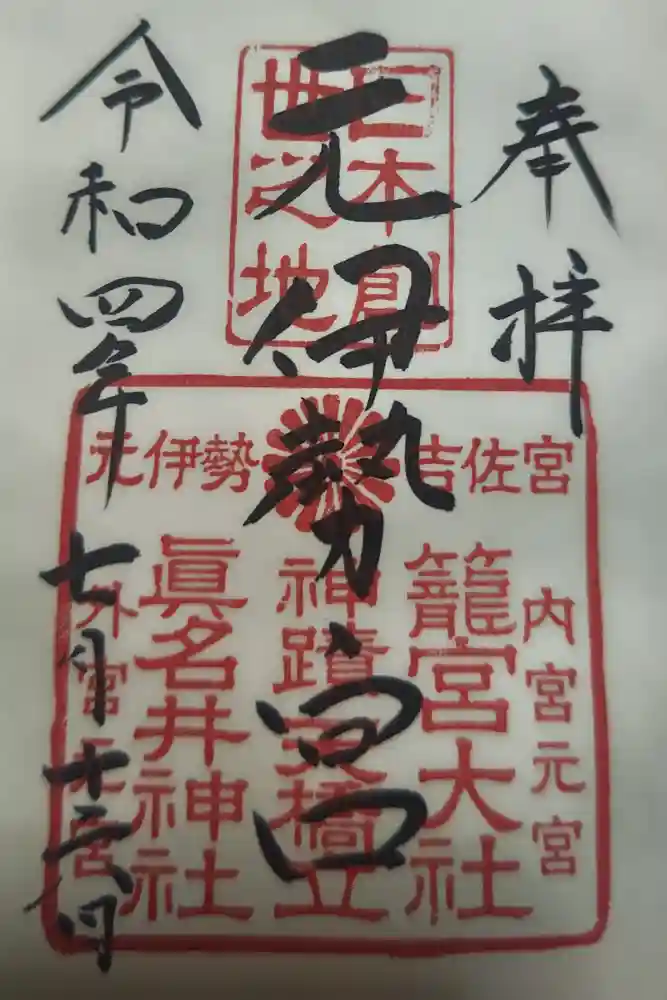 奉拝
元伊勢宮
令和四年七月十六日
日本創
世之地
元伊勢 吉佐宮
内宮元宮
籠宮大社
神蹟天橋立
眞名井神社
外宮元宮